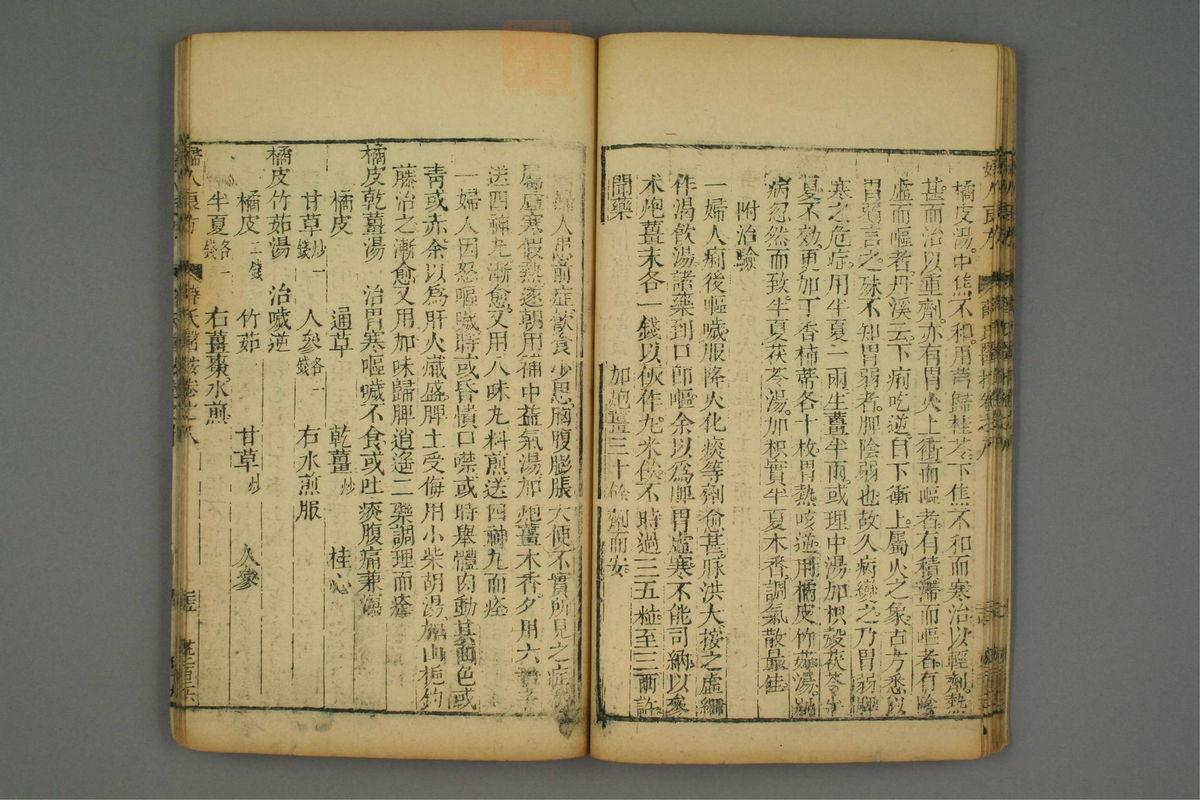 橘皮湯中焦不和用芎歸桂苓下焦不和而寒治以輕劑熱
甚而治以重劑亦有胃火上衝而嘔者有積滯而嘔者有陰
虛而嘔者丹溪云下痢吃逆曰下衝上屬火之象古方悉以
胃弱言之殊不知胃弱者脾陰弱也故久病變之乃胃弱脾
寒之危症用半夏一兩生薑半兩或理中湯加枳殼茯苓半
夏不效更加丁香柿蒂各十枚胃熱咳逆用橘皮竹茹湯
病忽然而致半夏茯苓湯加枳實半夏木香調氣散最佳
附治驗
一婦人痢後嘔噦服降火化痰等劑愈甚脈洪大按之虛細
作渴飲湯諸藥到口即嘔余以為脾胃虛寒不能司納以參
朮炮薑末各一錢以飯作丸米飲不時過三五粒至三兩許
聞藥
加炮薑三十餘劑而安
婦人患前症飲食少思胸腹膨脹大便不實所見之症
屬虛寒假熱遂朝用補中益氣湯加炮薑木香夕用六君子
送四神丸漸愈又用八味丸料煎送四神丸而痊
一婦人因忍嘔噦時或昏憒口噤或時舉體肉動其面色或
青或赤余以為肝火熾盛脾土受侮用小柴胡湯加山梔鈎
藤治之漸愈又用加味歸脾逍遙二藥調理而痊
橘皮乾薑湯 治胃寒嘔噦不食或吐痰腹痛兼瀉
橘皮 通草 乾薑炒 桂心
甘草炒一錢 人參各一錢 右水煎服
橘皮竹茹湯 治噦逆
橘皮二錢 竹茹 甘草炒 人參
半夏各一錢 右薑棗水煎
婦人良方